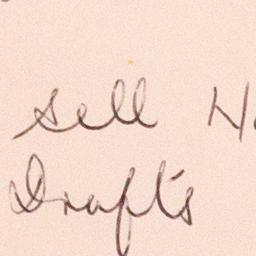 sell
Drafts